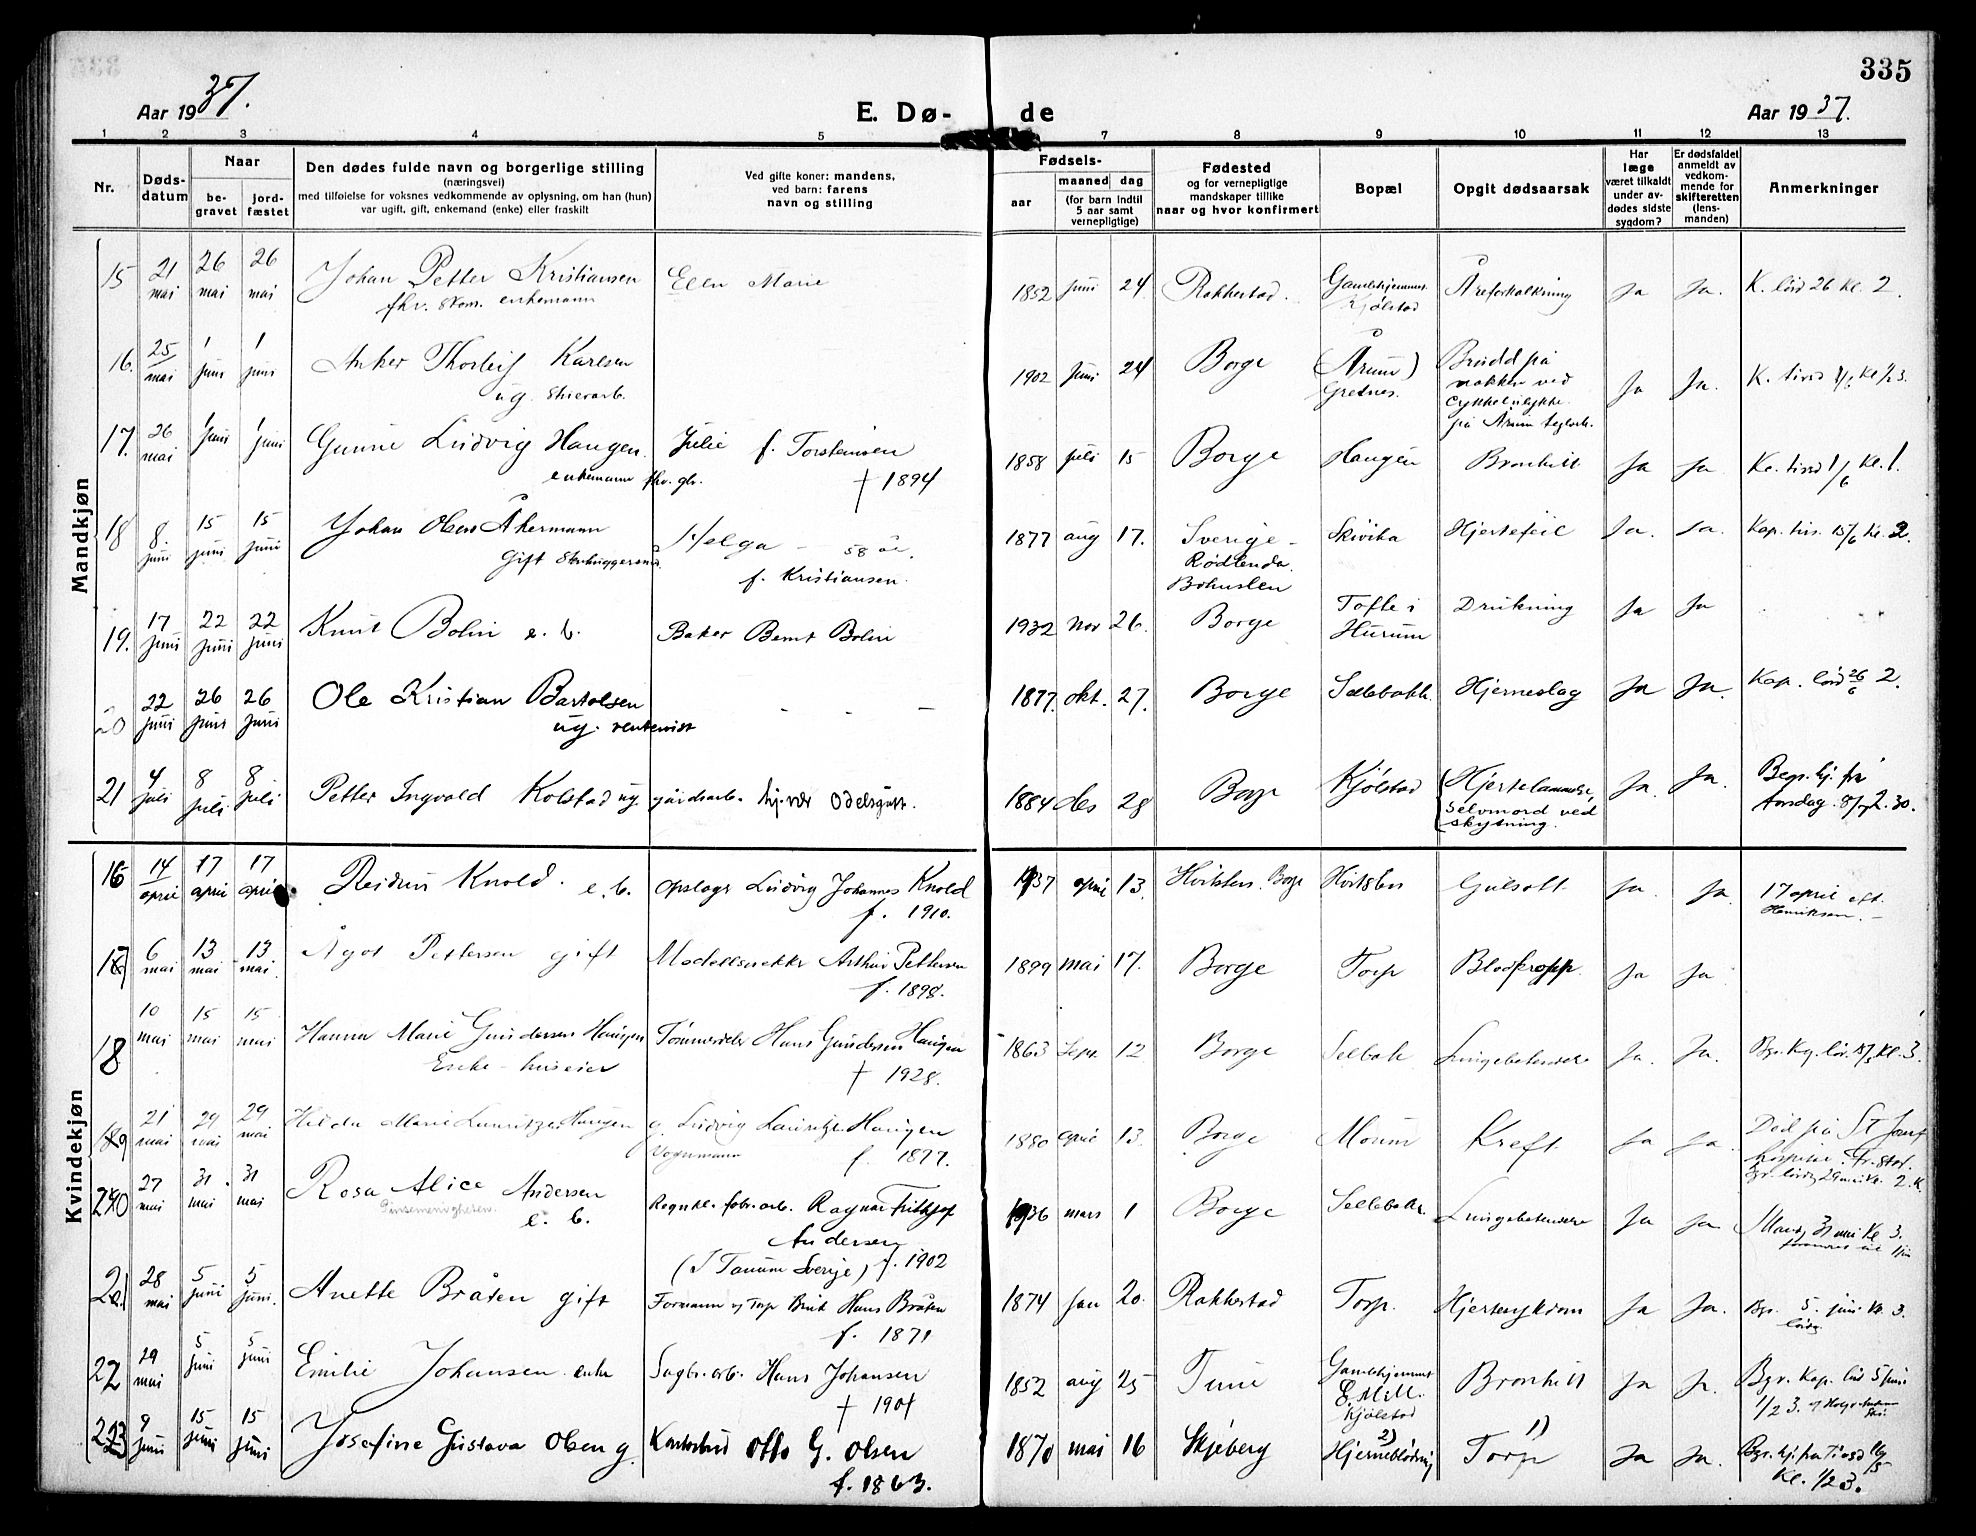 335
Aar 1937.
E. Dø-
de
Aar 1937.
1 2 3 4 5 7 8 9 10 11 12 13
Nr.
Døds-
datum
Naar
be-
gravet
jord-
fæstet
Den dødes fulde navn og borgerlige stilling
(næringsvei)
med tilføielse for voksnes vedkommende av oplysning, om han (hun)
var ugift, gift, enkemand (enke) eller fraskilt
Ved gifte koner: mandens,
ved barn: farens
navn og stilling
Fødsels-
aar
maaned
dag
(for barn indtil
5 aar samt
vernepligtige)
Fødested
og for vernepligtige
mandskaper tillike
naar og hvor konfirmert
Bopæl
Opgit dødsaarsak
Har
læge
været tilkaldt
under av-
dødes sidste
sygdom?
Er dødsfaldet
anmeldt av
vedkom-
mende for
skifteretten
(lens-
manden)
Anmerkninger
Mandkjøn
15 21 mai 26 mai 26 mai Johan Petter Kristiansen Ellen Marie 1852 juni 24 Rakkestad. Gamlehjemmet Åreforkalkning Ja Ja. K. lörd 26 kl. 2.
fhv. skom. enkemann Kjölstad
16. 25 mai 1 juni 1 juni Anker Thorleif Karlsen 1902 juni 24 Borge (Årum) Brudd på Ja Ja. K. tirsd 1/6 kl 1/2 3.
ug. skierarb. Grednes. nakken ved
cykkelulykke
på Årum
17. 26 mai 1 juni 1 juni Gunne Ludvig Haugen. Julie f. Torsteinsen 1858 juli 15 Borge Haugen Bronkitt Ja Ja. K. tirsd 1/6 kl. 1.
enkemann fhv. gbr. † 1894
18 8. juni 15 juni 15 juni Johan Olsen Åkermann Helga – 58 år. 1877 aug 17. Sverige – Skivika Hjertefeil Ja. Ja. Kap. tirs. 15/6 kl. 2.
Gift Stenhuggersmed. f. Kristiansen. Rødlenda.
Bohuslen
19. 17 juni 22 juni 22 juni Knut Bolin e. b. Baker Bernt Bolin 1932 nov 26. Borge Tofte i Drukning Ja Ja
Hurum
20 22 juni 26 juni 26 juni Ole Kristian Bartolsen – – – 1877. okt. 27. Borge Sellebakk. Hjerneslag Ja Ja. Kap. lörd 26/6 2.
ug. rentenist
21 4 juli 8 juli 8 juli Petter Ingvald Kolstad ug. gårdsarb. 1884 des 28 Borge Kjölstad (Hjertelammelse, Ja. Ja. Begr. hj. fra
selvmord ved torsdag. 8/7 2.30.
skytning.
Kvindekjøn
16 14 april 17 april 17 april Reidun Knold. e. b. opslagr Ludvig Johannes Knold 1937 april 13. Borge Gulsott Ja. Ja. 17 april
f. 1910. Henriksen.
17 6 mai 13 mai 13 mai. Ågot Pettersen gift Modellsnekker Arthur Pettersen 1899 mai 17. Borge Torp Blodpropp. Ja Ja
f. 1898.
18 10 mai 15 mai 15 mai Hanna Marie Gundersen Haugen Tömmerdeler Hans Gundersen Haugen 1863 Sept. 12 Borge Selbak Lungebetendelse Ja. Ja. Bgr. lör. 15/5 kl. 3.
Enke – huseier † 1928.
19 21 mai 29 mai 29 mai Hilda Marie Lauritzen Haugen g. Ludvig Lauritzen Haugen 1880 april 13. Borge Moum Kreft. Ja Ja. Död på St. Josef
Vognmann f. 1877. hospital. Fr.stad.
20 27 mai 31. mai 31 mai Rosa Alice Andersen Ragnar Frithjof 1936 mars 1 Borge Sellebakk. Lungebetendelse Ja Ja. Mand. 31 mai kl 3.
Pinsemenigheten. e. b. Andersen
(I Tanum Sverige) f. 1902
21 28 mai 5 juni 5 juni. Anette Bråten gift Formann v/ Torp Bruk Hans Bråten 1874 jan 20. Rakkestad Torp. Hjertesykdom Ja Ja. Bgr. 5. juni kl. 3.
f. 1871 lördag
22 29 mai 5 juni 5 juni Emilie Johansen enke Sagbr.arb. Hans Johansen 1852 aug 25 Tune Gamlehjemmet Bronkitt Ja Ja. Bgr. Kap. lörd 5 juni
† 1901 Kjölstad 1/2 3.
23 9 juni 15 juni 15 juni Josefine Gustava Olsen g. Kontorbud Otto G. Olsen 1870 mai 16 Skjeberg 2) Hjerneblödning 1) Torp Ja Ja. Bgr. hj. fra Tirsd
f. 1863. Kl. 1/2 3.